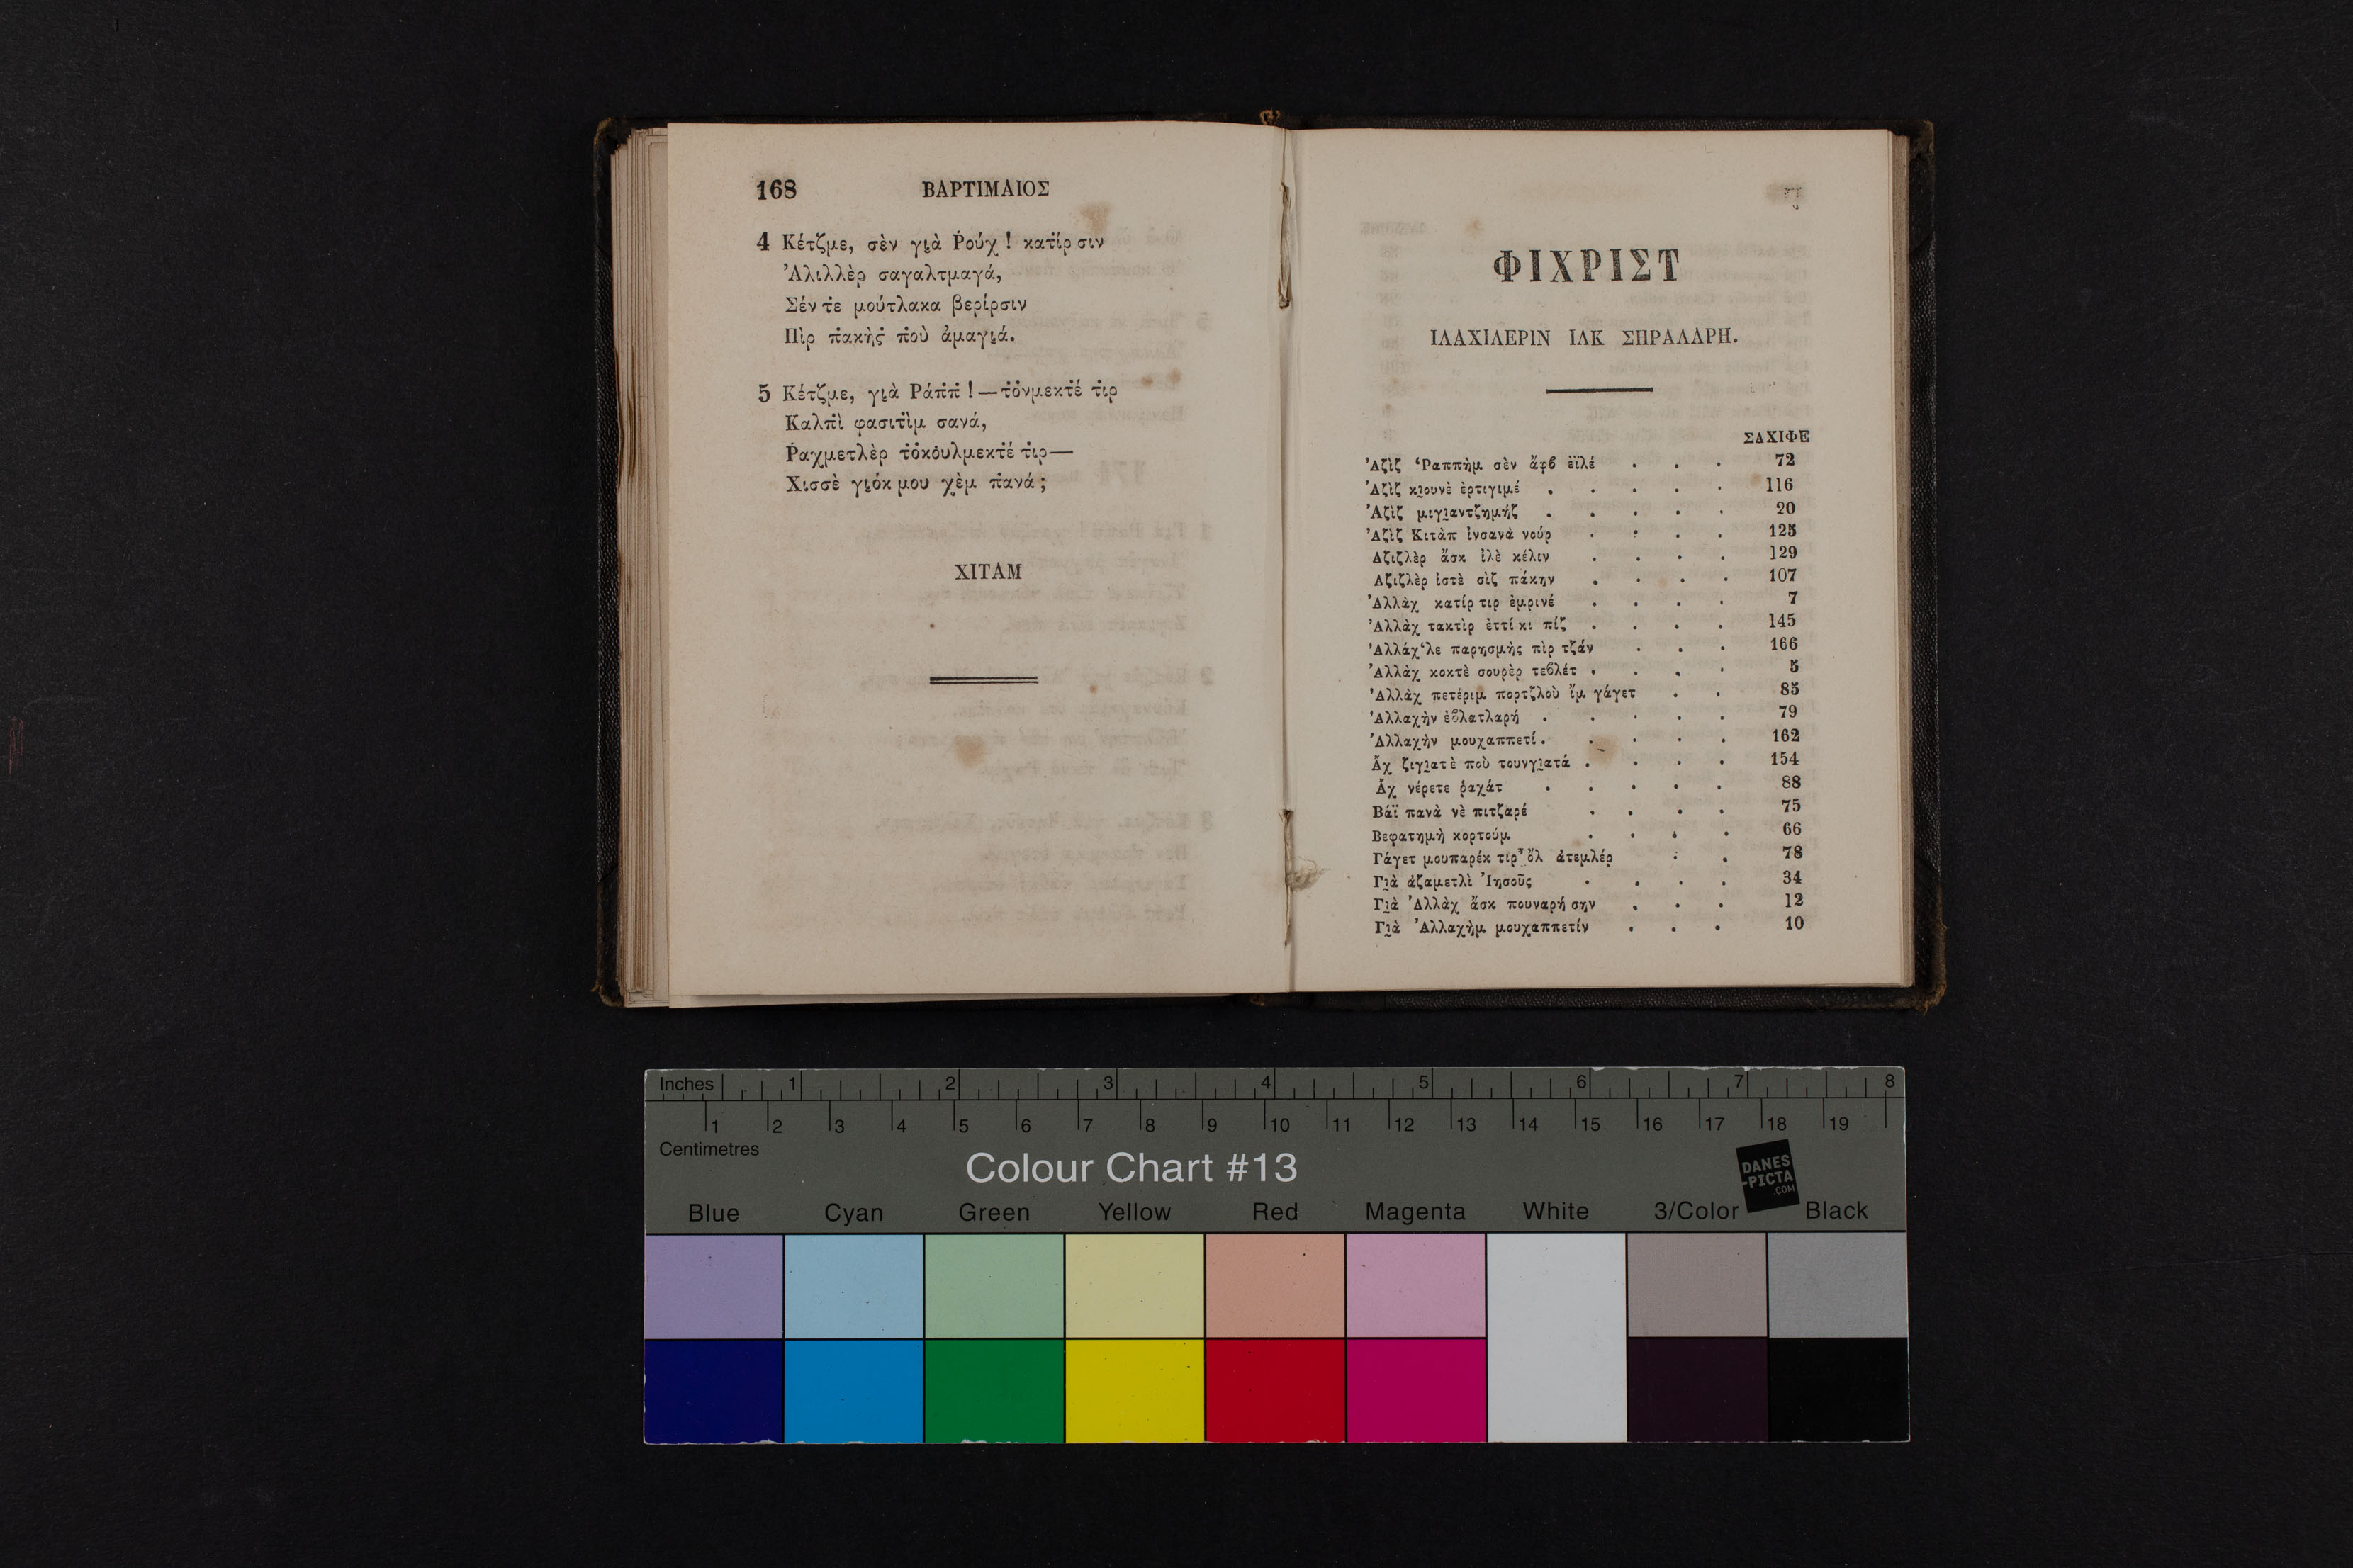 168 ΒΑΡΤΙΜΑΙΟΣ
4 Κέτζμε, σὲν γι̲ὰ Ῥούχ ! κατίρ σιν
Ἀλιλλὲρ σαγαλτμαγά,
Σέν τ̇ε μούτλακα βερίρσιν
Πὶρ π̇ακὴς π̇οὺ ἀμαγι̲ά.
5 Κέτζμε, γι̲ὰ Ράπ̇π̇ ! — τ̇όνμεκτ̇έ τ̇ιρ
Καλπ̇ὶ φασιτ̇ὶμ σανά,
Ῥαχμετλὲρ τ̇ὀκόυλμεκτ̇έ τ̇ιρ—
Χισσὲ γι̲όκ μου χὲμ π̇ανά ;
ΧΙΤΑΜ
ΦΙΧΡΙΣΤ
ΙΛΑΧΙΛΕΡΙΝ ΙΛΚ ΣΗΡΑΛΑΡΗ.
ΣΑΧΙΦΕ
Ἀζὶζ Ῥαππὴμ σὲν ἄφϐ ἐϊλέ . . . 72
Ἀζὶζ κι̲ουνὲ ἐρτιγιμέ . . . . . 116
Ἀζὶζ μιγι̲αντζημήζ . . . . . 20
Ἀζὶζ Κιτὰπ ἰνσανὰ νούρ . . . . 125
Αζιζλὲρ ἄσκ ἰλὲ κέλιν . . . . 129
Αζιζλὲρ ἰστὲ σὶζ πάκην . . . . 107
Ἀλλὰχ κατίρ τιρ ἐμρινέ . . . . 7
Ἀλλὰχ τακτὶρ ἐττί κι πίζ . . . . 145
Ἀλλάχ‘λε παρησμὴς πὶρ τζάν . . . 166
Ἀλλὰχ κοκτὲ σουρὲρ τεϐλέτ . . . . 5
Ἀλλὰχ πετέριμ πορτζλοὺ ἴμ γάγετ . . 85
Ἀλλαχὴν ἐϐλατλαρή . . . . . 79
Ἀλλαχὴν μουχαππετί . . . . . 162
Ἂχ ζιγι̲ατὲ ποὺ τουνγι̲ατά . . . . 154
Ἂχ νέρετε ῥαχάτ . . . . . 88
Βάϊ πανὰ νὲ πιτζαρέ . . . . 75
Βεφατημὴ κορτούμ . . . . 66
Γάγετ μουπαρέκ τιρ ὂλ ἀτεμλέρ . . 78
Γι̲ὰ ἀζαμετλὶ Ἰησοῦς . . . . 34
Γι̲ὰ Ἀλλὰχ ἄσκ πουναρή σην . . . 12
Γι̲ὰ Ἀλλαχὴμ μουχαππετίν . . . 10
Inches 1 2 3 4 5 6 7 8
1 2 3 4 5 6 7 8 9 10 11 12 13 14 15 16 17 18 19
Centimetres
Colour Chart #13
DANES
-PICTA
.COM
Blue Cyan Green Yellow Red Magenta White 3/Color Black